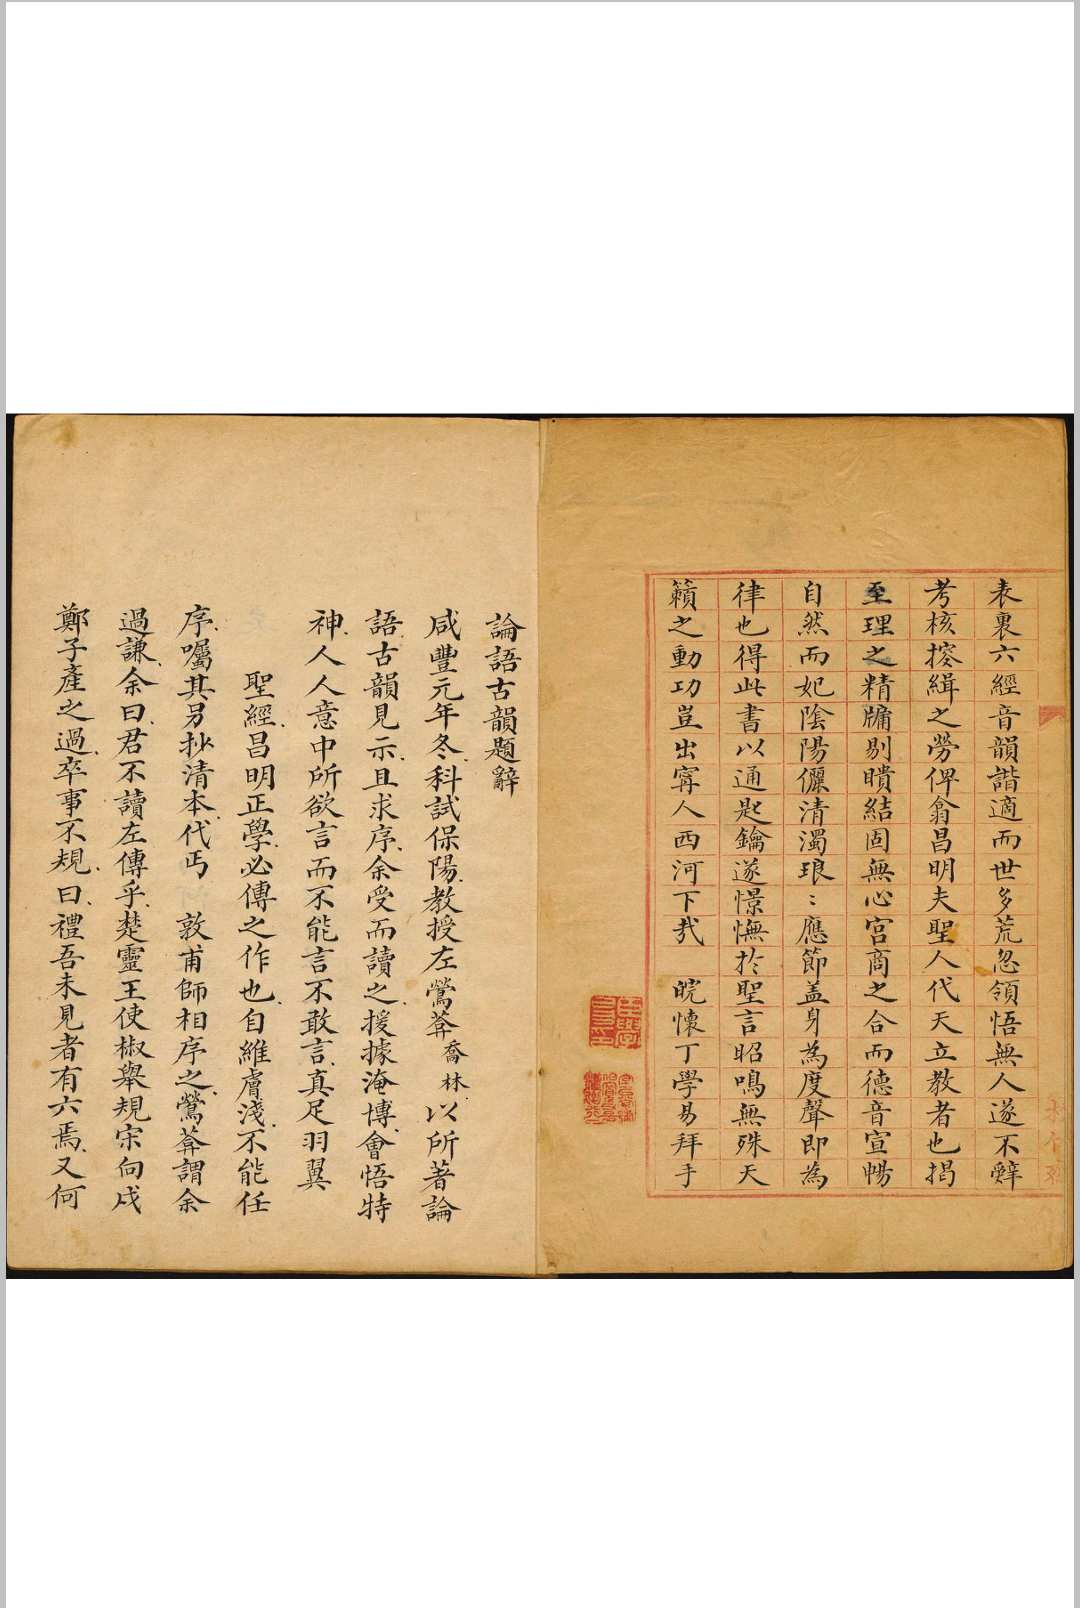 表裏六經音韻諧適而世多荒忽領悟無人遂不辤
考核摉緝之勞俾翕昌明夫聖人代天立教者也揭
至理之精牖剔瞶結固無心宮商之合而德音宣暢
自然而妃陰陽儷清濁琅〻應節盖身為度聲即為
律也得此書以通匙鑰遂憬憮於聖言昭鳴無殊天
籟之動功豈出寗人西河下㢤 皖懷丁學易拜手
論語古韻題辭
咸豐元年冬科試保陽教授左鶯葊喬林以所著論
語古韻見示且求序余受而讀之援據淹博會悟特
神人人意中所欲言而不能言不敢言真足羽翼
聖經昌明正學必傳之作也自維膚淺不能任
序囑其另抄清本代丐 敦甫師相序之鶯葊謂余
過謙余曰君不讀左傳乎楚靈王使椒舉規宋向戌
鄭子產之過卒事不規曰禮吾未見者有六焉又何